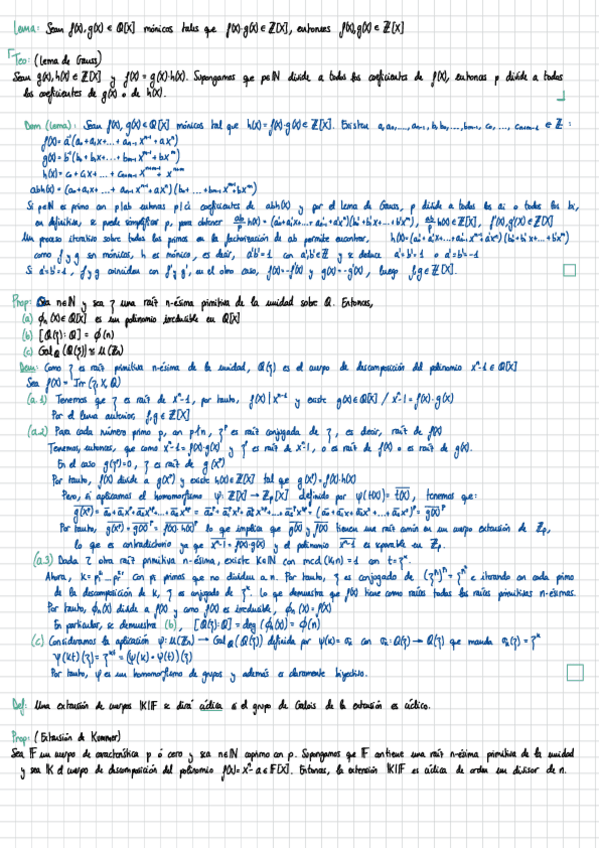 Lema: Sean f(x), g(x) ∈ Q[x] mónicos tales que f(x)·g(x) ∈ Z[x], entonces f(x), g(x) ∈ Z[x]
Teo: (Lema de Gauss)
Sean g(x), h(x) ∈ Z[x] y f(x) = g(x)·h(x). Supongamos que p∈N divide a todos los coeficientes de f(x), entonces p divide a todos
los coeficientes de g(x) o de h(x).
Dem (Lema): Sean f(x), g(x) ∈ Q[x] mónicos tal que h(x) = f(x)·g(x) ∈ Z[x]. Existen a, a₀, ..., aₙ₋₁, b, b₀, ..., bₘ₋₁, c₀, ..., cₙ₊ₘ₋₁ ∈ Z :
f(x) = a⁻¹(a₀ + a₁x + ... + aₙ₋₁xⁿ⁻¹ + axⁿ)
g(x) = b⁻¹(b₀ + b₁x + ... + bₘ₋₁xᵐ⁻¹ + bxᵐ)
h(x) = c₀ + c₁x + ... + cₙ₊ₘ₋₁xⁿ⁺ᵐ⁻¹ + xⁿ⁺ᵐ
abh(x) = (a₀ + a₁x + ... + aₙ₋₁xⁿ⁻¹ + axⁿ)(b₀ + ... + bₘ₋₁xᵐ⁻¹ + bxᵐ)
Si p∈N es primo con p|ab entonces p| coeficientes de abh(x) y por el lema de Gauss, p divide a todos los aᵢ o todos los bᵢ,
en definitiva, se puede simplificar p, para obtener ab/p h(x) = (a'₀ + a'₁x + ... + a'ₙ₋₁ + a'xⁿ)(b'₀ + b'₁x + ... + b'xᵐ), ab/p h(x) ∈ Z[x], f'(x), g'(x) ∈ Z[x]
Un proceso iterativo sobre todos los primos en la factorización de ab permite encontrar, h(x) = (a'₀ + a'₁x + ... + a'ₙ₋₁xⁿ⁻¹ + a'xⁿ)(b'₀ + b'₁x + ... + b'xᵐ)
como f y g son mónicos, h es mónico, es decir, a'b' = 1 con a', b' ∈ Z y se deduce a' = b' = 1 o a' = b' = -1
Si a' = b' = 1, f y g coinciden con f' y g', en el otro caso, f(x) = -f'(x) y g(x) = -g'(x), luego f, g ∈ Z[x].
Prop: Sea n∈N y sea ζ una raíz n-ésima primitiva de la unidad sobre Q. Entonces,
(a) ϕₙ(x) ∈ Q[x] es un polinomio irreducible en Q[x]
(b) [Q(ζ) : Q] = ϕ(n)
(c) Gal_Q(Q(ζ)) ≅ U(Zₙ)
Dem: Como ζ es raíz primitiva n-ésima de la unidad, Q(ζ) es el cuerpo de descomposición del polinomio xⁿ-1 ∈ Q[x]
Sea f(x) = Irr(ζ, x, Q)
(a.1) Tenemos que ζ es raíz de xⁿ-1, por tanto, f(x) | xⁿ-1 y existe g(x) ∈ Q[x] / xⁿ-1 = f(x)·g(x)
Por el lema anterior, f, g ∈ Z[x]
(a.2) Para cada número primo p, con p∤n, ζᵖ es raíz conjugada de ζ, es decir, raíz de f(x)
Tenemos, entonces, que como xⁿ-1 = f(x)·g(x) y ζᵖ es raíz de xⁿ-1, o es raíz de f(x) o es raíz de g(x).
En el caso g(ζᵖ) = 0, ζ es raíz de g(xᵖ)
Por tanto, f(x) divide a g(xᵖ) y existe h(x) ∈ Z[x] tal que g(xᵖ) = f(x)·h(x)
Pero, si aplicamos el homomorfismo ψ: Z[x] → Zₚ[x] definido por ψ(t(x)) = t̄(x), tenemos que:
Por tanto, g(xᵖ) = g(x)ᵖ = f(x)·h(x) lo que implica que g(x) y f(x) tienen una raíz común en un cuerpo extensión de Zₚ,
lo que es contradictorio ya que xⁿ-1 = f(x)·g(x) y el polinomio xⁿ-1 es separable en Zₚ.
(a.3) Dada t otra raíz primitiva n-ésima, existe k∈N con mcd(k,n) = 1 con t = ζᵏ.
Por tanto, ϕₙ(x) divide a f(x) y como f(x) es irreducible, ϕₙ(x) = f(x)
En particular, se demuestra (b), [Q(ζ) : Q] = deg(ϕₙ(x)) = ϕ(n)
(c) Consideramos la aplicación ψ: U(Zₙ) → Gal_Q(Q(ζ)) definida por ψ(k) = σₖ con σₖ: Q(ζ) → Q(ζ) que manda σₖ(ζ) = ζᵏ
Por tanto, ψ es un homomorfismo de grupos y además es claramente biyectivo.
Def: Una extensión de cuerpos K|F se dirá cíclica si el grupo de Galois de la extensión es cíclico.
Prop: (Extensión de Kummer)
Sea F un cuerpo de característica p ó cero y sea n∈N coprimo con p. Supongamos que F contiene una raíz n-ésima primitiva de la unidad
y sea K el cuerpo de descomposición del polinomio f(x) = xⁿ-a ∈ F[x]. Entonces, la extensión K|F es cíclica de orden un divisor de n.